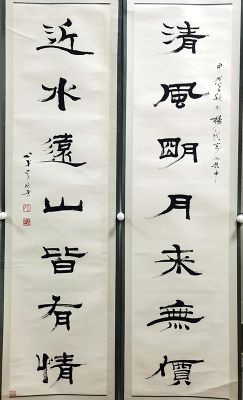 清風明月來無價
近水遠山皆有情